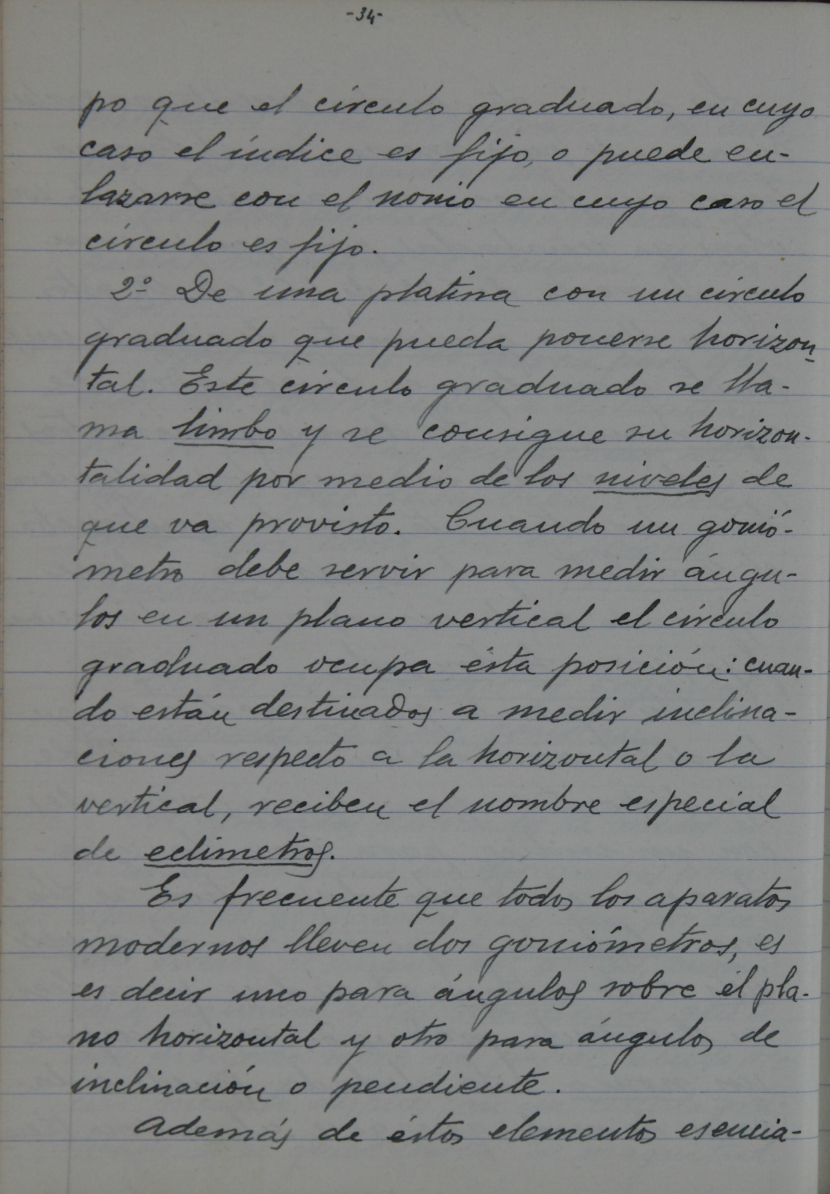 -34-
po que el círculo graduado, en cuyo
caso el índice es fijo, o puede en-
lazarse con el nonio en cuyo caso el
círculo es fijo.
2º De una platina con un círculo
graduado que pueda ponerse horizon-
tal. Este círculo graduado se lla-
ma limbo y se consigue su horizon-
talidad por medio de los niveles de
que va provisto. Cuando un gonió-
metro debe servir para medir ángu-
los en un plano vertical el círculo
graduado ocupa ésta posición: cuan-
do están destinados a medir inclina-
ciones respecto a la horizontal o la
vertical, reciben el nombre especial
de eclimetros.
Es frecuente que todos los aparatos
modernos lleven dos goniómetros, es
es decir uno para ángulos sobre el pla-
no horizontal y otro para ángulos de
inclinación o pendiente.
Además de éstos elementos esencia-